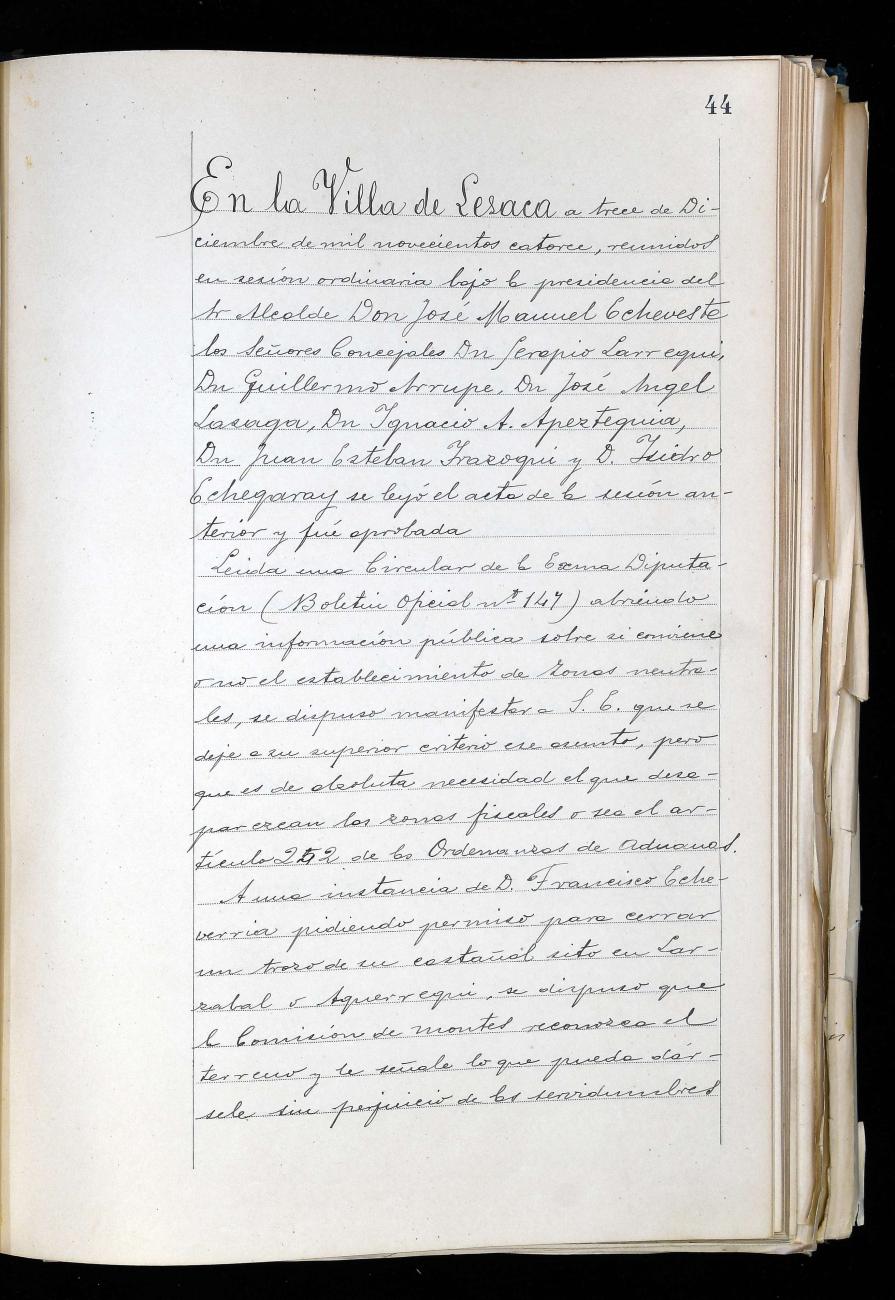 44
En la Villa de Lesaca a trece de Di-
ciembre de mil novecientos catorce, reunidos
en sesión ordinaria bajo la presidencia del
Sr Alcalde Don José Manuel Echeveste
los Señores Concejales Dn Serapio Larregui,
Dn Guillermo Arrupe, Dn José Angel
Lasaga, Dn Ignacio A. Apezteguia,
Dn Juan Esteban Irazoqui y D. Isidro
Echegaray se leyó el acta de la sesión an-
terior y fué aprobada
Leida una Circular de la Exma Diputa-
ción (Boletin Oficial nº 147) abriendo
una información pública sobre si conviene
o no el establecimiento de zonas neutra-
les, se dispuso manifestar a S. E. que se
deje a su superior criterio ese asunto, pero
que es de absoluta necesidad el que desa-
parezcan las zonas fiscales o sea el ar-
tículo 252 de las Ordenanzas de Aduanas.
A una instancia de D. Francisco Eche-
verria pidiendo permiso para cerrar
un trozo de su castañal sito en Lar-
zabal o Aguerregui, se dispuso que
la Comisión de montes reconozca el
terreno y le señale lo que pueda dár-
sele sin perjuicio de las servidumbres